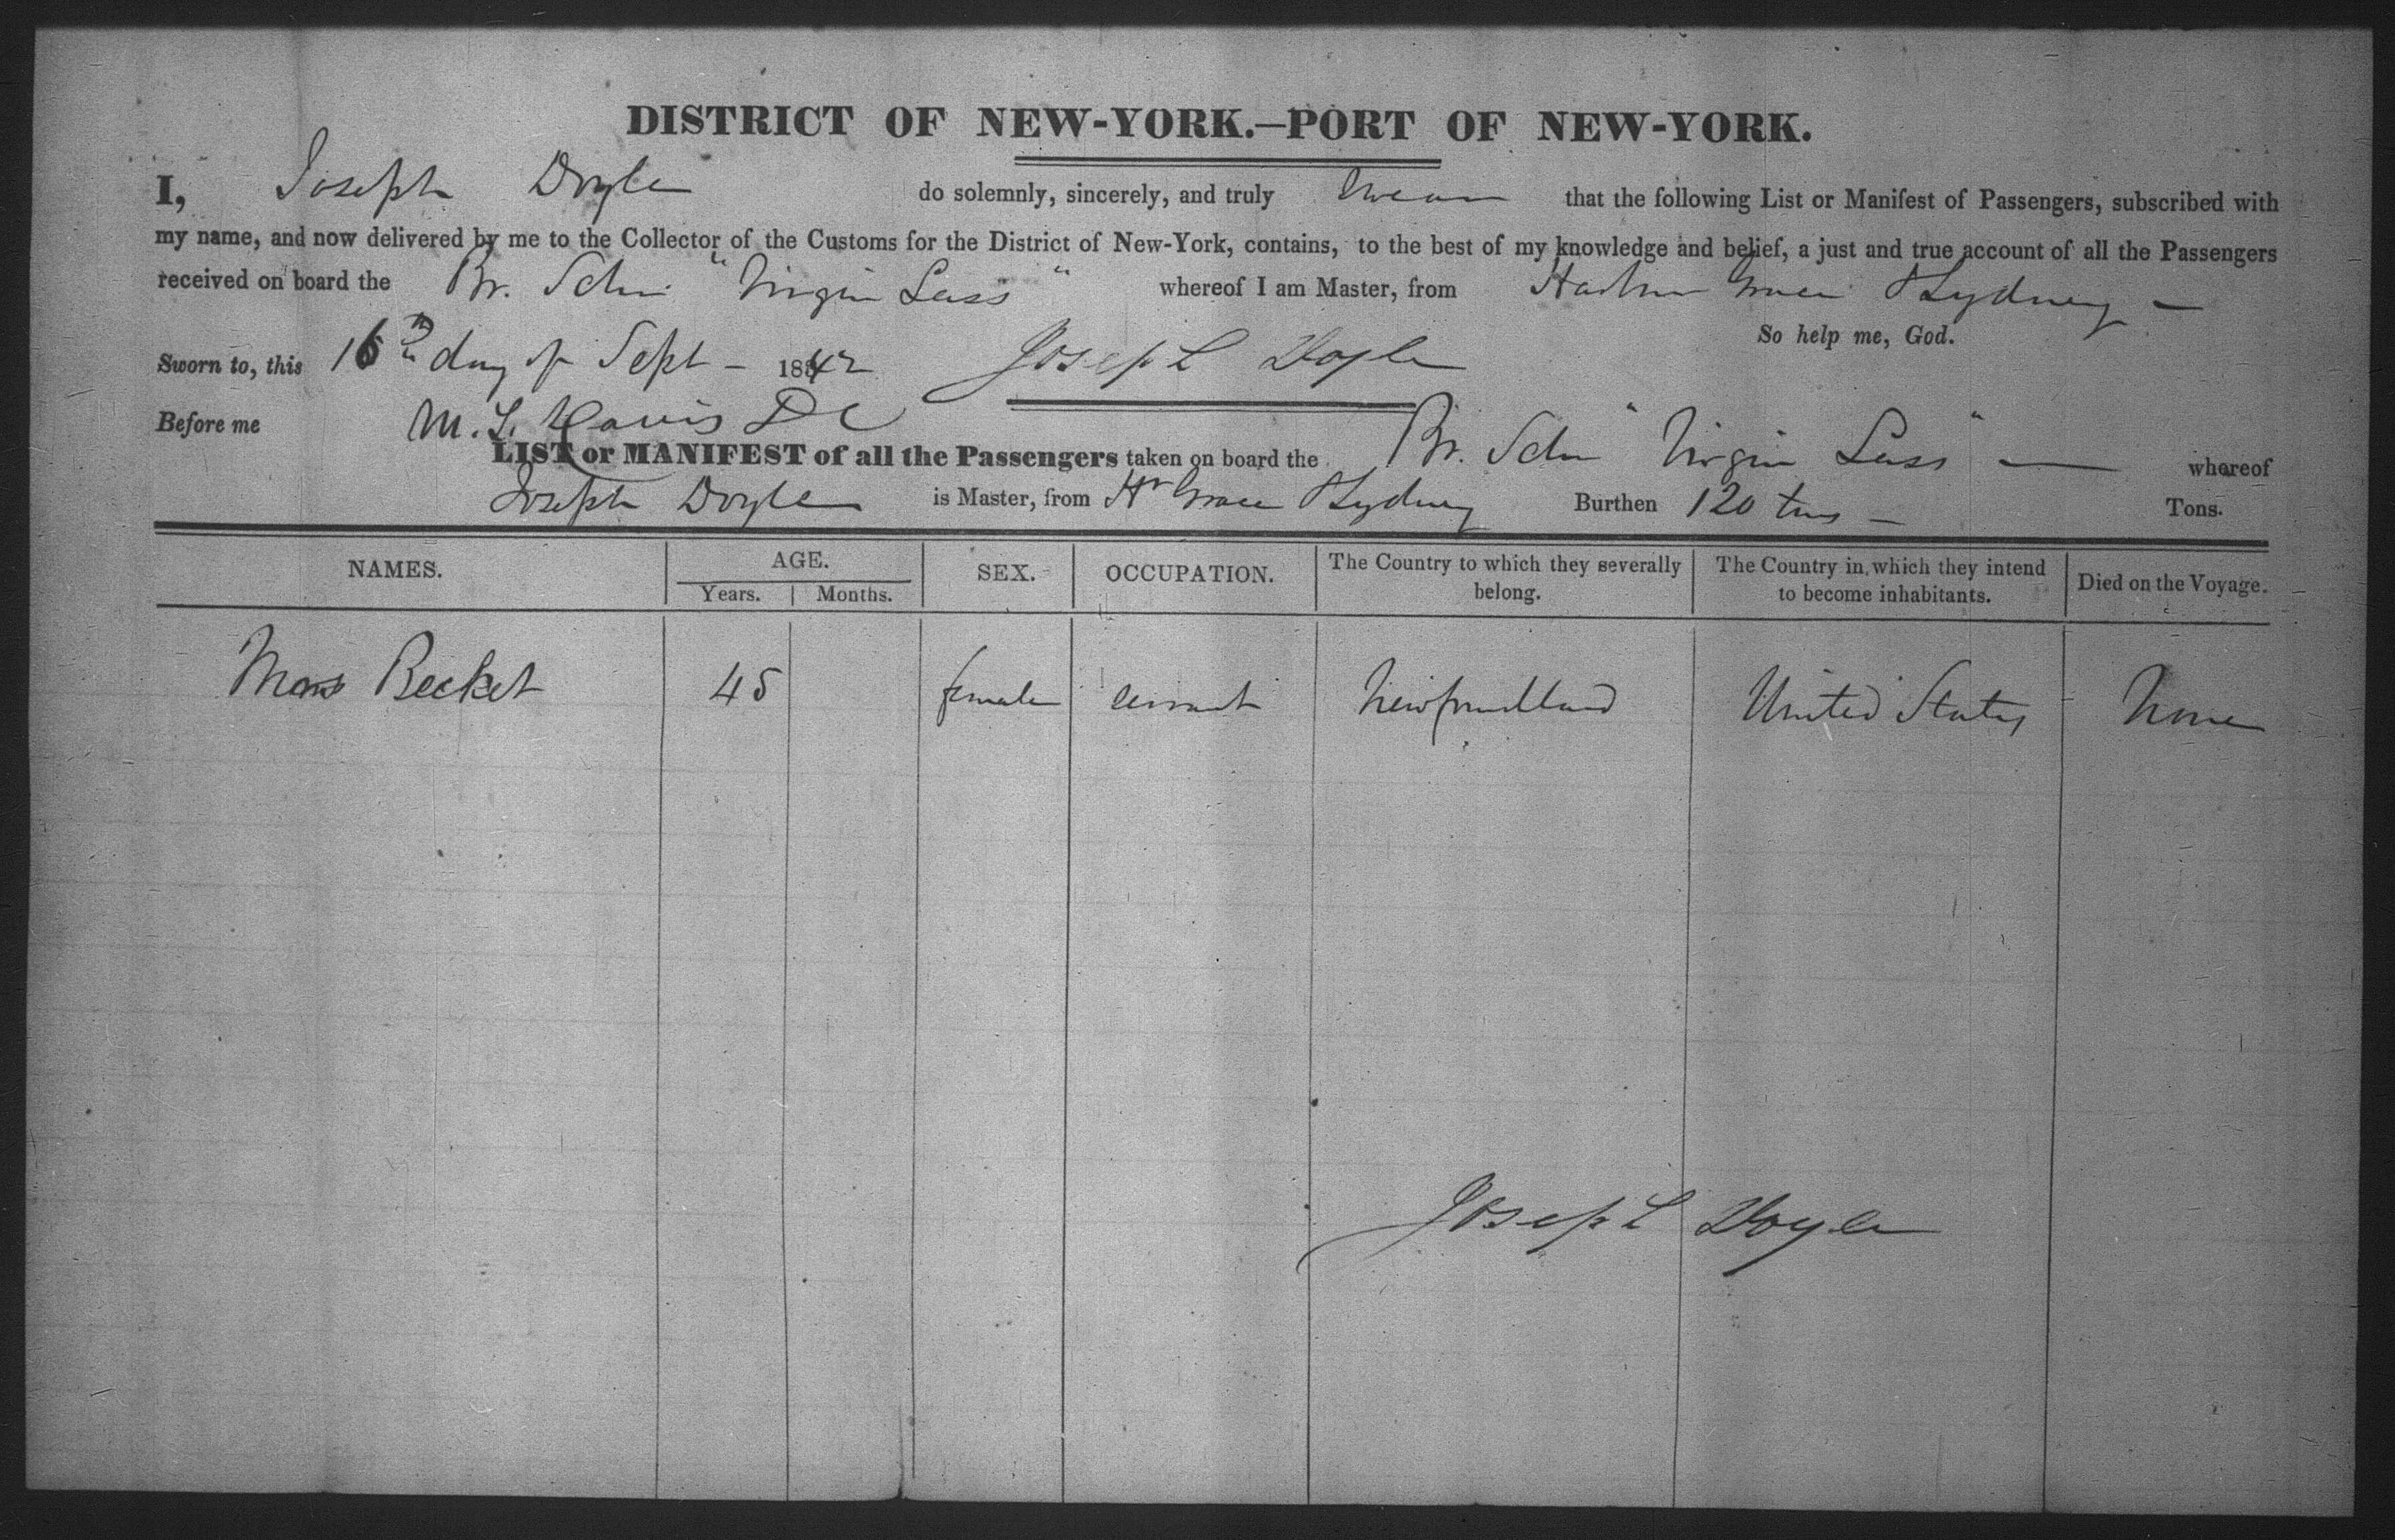 DISTRICT OF NEW-YORK.—PORT OF NEW-YORK.
I, Joseph Doyle do solemnly, sincerely, and truly swear that the following List or Manifest of Passengers, subscribed with
my name, and now delivered by me to the Collector of the Customs for the District of New-York, contains, to the best of my knowledge and belief, a just and true account of all the Passengers
received on board the Br. Schr "Virgin Lass" whereof I am Master, from Harbor Grace & Sydney —
So help me, God.
Sworn to, this 16 day of Sept - 1842 Joseph Doyle
Before me M. L. Davis DC
LIST or MANIFEST of all the Passengers taken on board the Br. Schr "Virgin Lass" — whereof
Joseph Doyle is Master, from Hr Grace & Sydney Burthen 120 tons — Tons.
NAMES. AGE. SEX. OCCUPATION. The Country to which they severally belong. The Country in which they intend to become inhabitants. Died on the Voyage.
Years. Months.
Becket 45 female servant Newfoundland United States None
Joseph Doyle